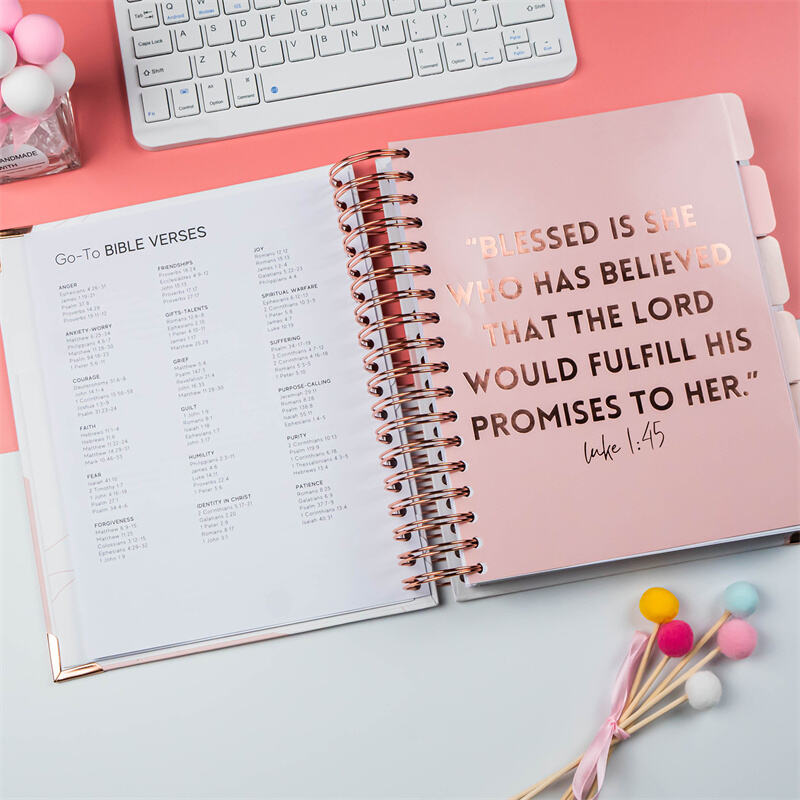 Go-To BIBLE VERSES
ANGER
Ephesians 4:26-31
James 1:19-21
Psalm 37:8
Proverbs 14:29
Proverbs 19:11-12
ANXIETY-WORRY
Matthew 6:25-34
Philippians 4:6-7
Matthew 11:28-30
Psalm 94:18-23
1 Peter 5:6-11
COURAGE
Deuteronomy 31:6-8
John 14:1-4
1 Corinthians 15:56-58
Joshua 1:3-9
Psalm 31:23-24
FAITH
Hebrews 11:1-4
Hebrews 11:6
Matthew 17:22-24
Matthew 14:29-31
Mark 10:46-53
FEAR
Isaiah 41:10
2 Timothy 1:7
1 John 4:16-18
Psalm 27:1
Psalm 34:4-6
FORGIVENESS
Matthew 6:9-15
Matthew 11:25
Colossians 3:12-15
Ephesians 4:29-32
1 John 1:9
FRIENDSHIPS
Proverbs 18:24
Ecclesiastes 4:9-12
John 15:13
Proverbs 17:17
Proverbs 27:17
GIFTS-TALENTS
Romans 12:6-8
Ephesians 2:10
1 Peter 4:10-11
James 1:17
Matthew 25:29
GRIEF
Matthew 5:4
Psalm 147:3
Revelation 21:4
John 16:33
Matthew 11:28-30
GUILT
1 John 1:9
Romans 8:1
Isaiah 1:18
Ephesians 1:7
John 3:17
HUMILITY
Philippians 2:3-11
James 4:6
Luke 14:11
Proverbs 22:4
1 Peter 5:6
IDENTITY IN CHRIST
2 Corinthians 5:17-21
Galatians 2:20
1 Peter 2:9
Romans 8:17
1 John 3:1
JOY
Romans 12:12
Romans 15:13
James 1:2-4
Galatians 5:22-23
Philippians 4:4
SPIRITUAL WARFARE
Ephesians 6:12-13
2 Corinthians 10:3-5
1 Peter 5:8
James 4:7
Luke 10:19
SUFFERING
Psalm 34:17-19
2 Corinthians 4:7-12
2 Corinthians 4:16-18
Romans 5:3-5
1 Peter 5:10
PURPOSE-CALLING
Jeremiah 29:11
Romans 8:28
Psalm 138:8
Isaiah 55:11
Ephesians 2:4-5
PURITY
2 Corinthians 10:13
Psalm 119:9
1 Corinthians 6:18-20
1 Thessalonians 4:3-5
Hebrews 13:4
PATIENCE
Romans 8:25
Galatians 6:9
Psalm 37:7-9
1 Corinthians 13:4
Isaiah 40:31
"BLESSED IS SHE
WHO HAS BELIEVED
THAT THE LORD
WOULD FULFILL HIS
PROMISES TO HER."
Luke 1:45